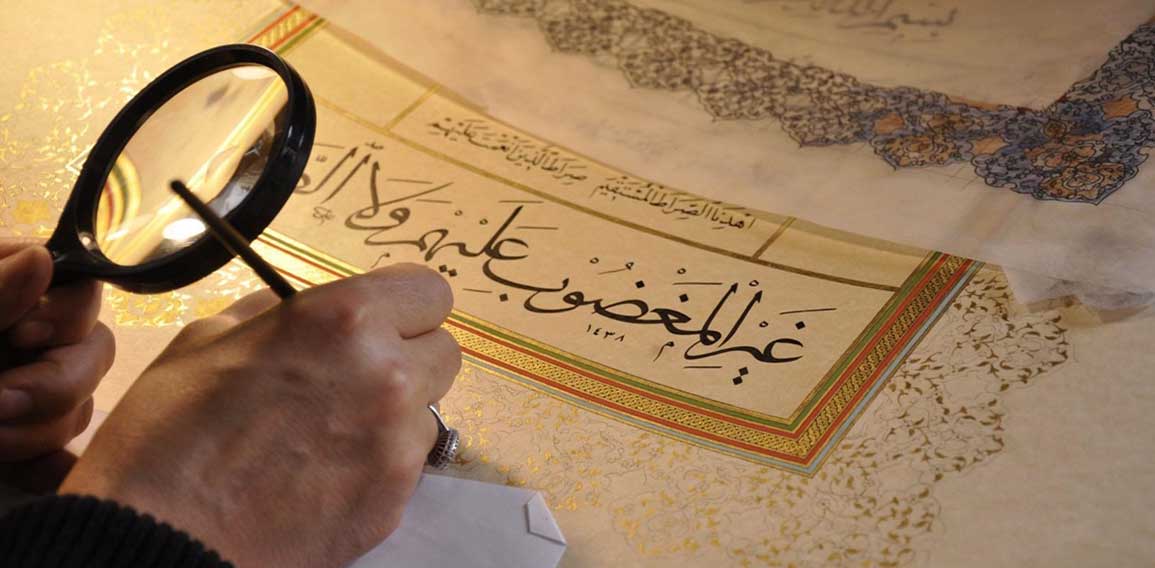 اهْدِنَا الصِّرَاطَ الْمُسْتَقِيمَ صِرَاطَ الَّذِينَ أَنْعَمْتَ عَلَيْهِمْ
غَيْرِ الْمَغْضُوبِ عَلَيْهِمْ وَلَا
١٤٣٨